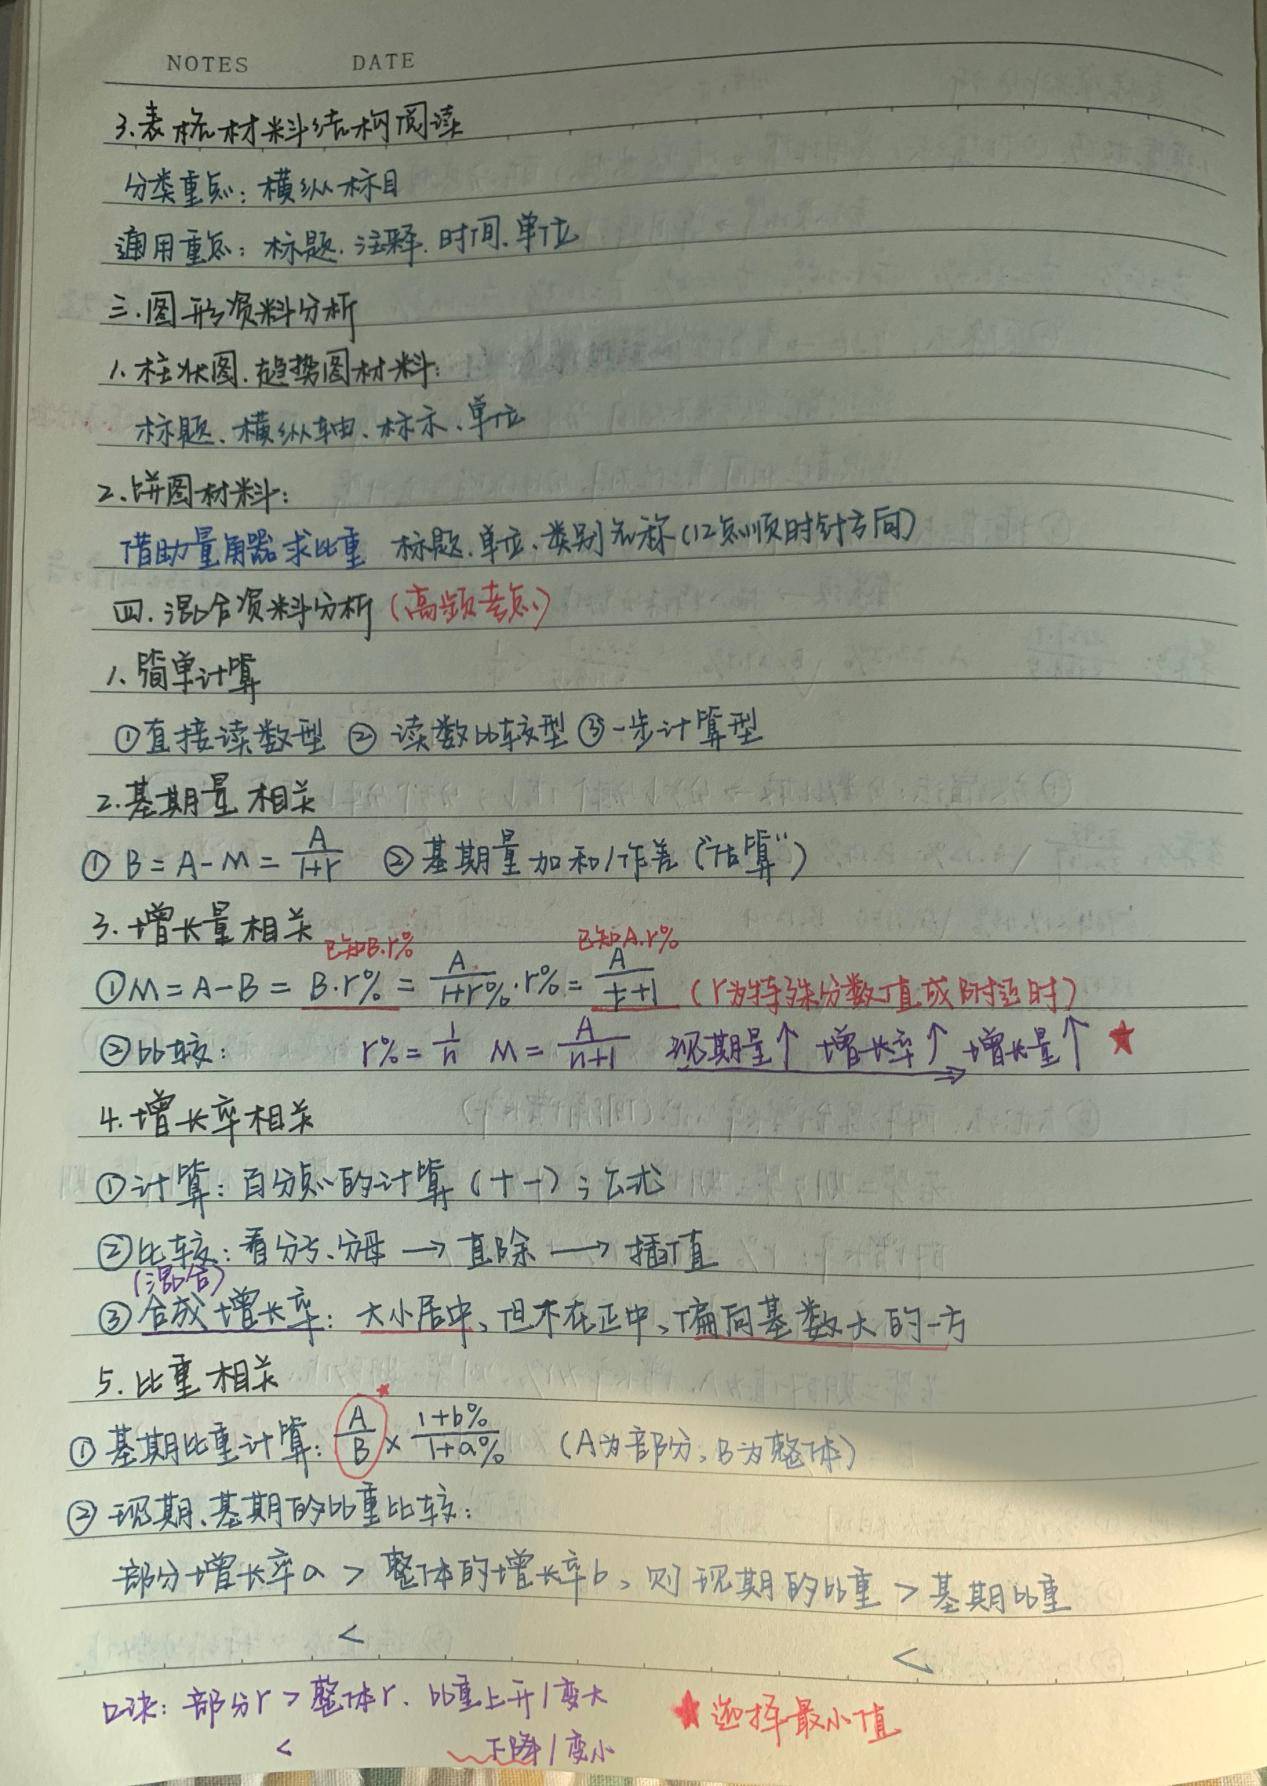 NOTES DATE
3.表格材料结构阅读
分类重点：横纵标目
通用重点：标题、注释、时间、单位
三.图形资料分析
1.柱状图、趋势图材料：
标题、横纵轴、标示、单位
2.饼图材料：
借助量角器求比重 标题、单位、类别名称(12点顺时针方向)
四.混合资料分析(高频考点)
1.简单计算
①直接读数型 ②读数比较型 ③一步计算型
2.基期量相关
① B = A - M = A/(1+r) ②基期量加和/作差("估算")
3.增长量相关
已知B.r% 已知A.r%
①M = A - B = B·r% = A/(1+r%)·r% = A/(1/r+1) (r为特殊分数值或附近时)
②比较： r% = 1/n M = A/(n+1) 现期量↑ 增长率↑ 增长量↑ ★
4.增长率相关
①计算：百分点的计算(+ -)；公式
②比较：看分子、分母 → 直除 → 插值
(混合)
③合成增长率：大小居中、但不在正中、偏向基数大的一方
5.比重相关
①基期比重计算：A/B × (1+b%)/(1+a%) (A为部分、B为整体)
②现期、基期的比重比较：
部分增长率a > 整体的增长率b，则现期的比重 > 基期比重
< <
口诀：部分r > 整体r、比重上升/变大 ★选择最小值
< 下降/变小